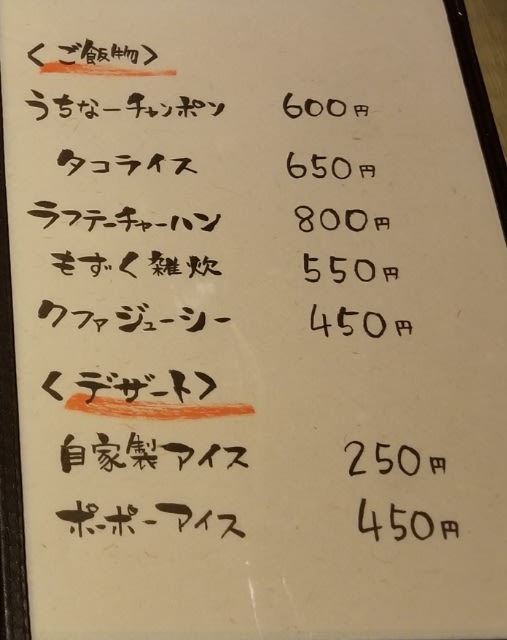 ＜ご飯物＞
うちなーチャンポン 600円
タコライス 650円
ラフテーチャーハン 800円
もずく雑炊 550円
クファジューシー 450円
＜デザート＞
自家製アイス 250円
ポーポーアイス 450円